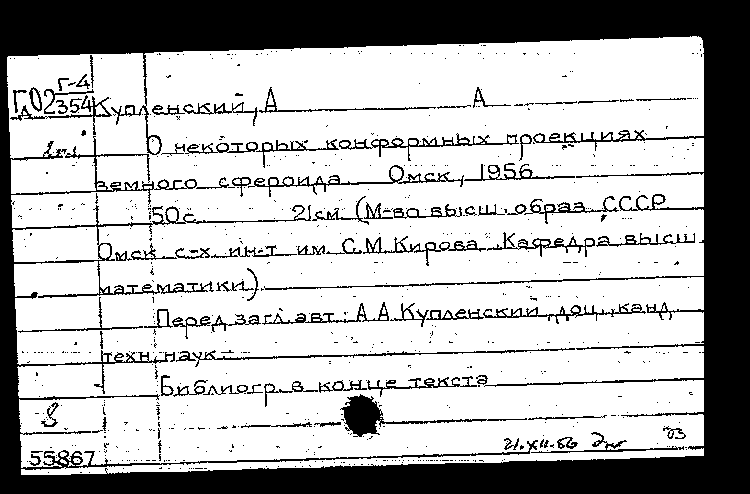 Г-4
Д02 354 Купленский, А А
2 экз.
О некоторых конформных проекциях
земного сфероида. Омск, 1956.
50с. 21см. (М-во высш. образ. СССР.
Омск. с-х. ин-т им. С.М. Кирова. Кафедра высш.
математики).
Перед загл. авт.: А.А. Купленский, доц., канд.
техн. наук.-
Библиогр. в конце текста
8
21.XII.56 03
55867